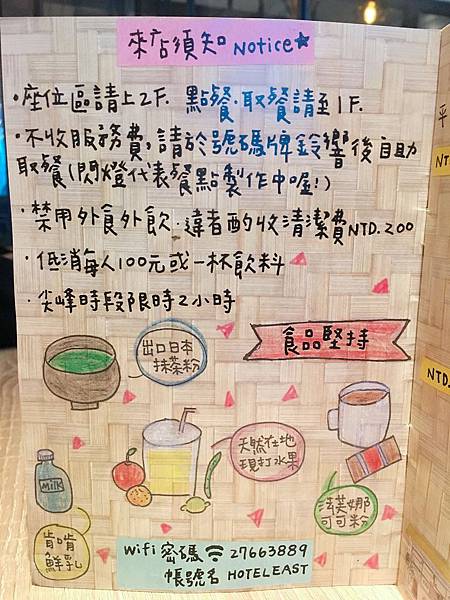 來店須知 Notice
·座位區請上2F. 點餐·取餐請至1F.
·不收服務費,請於號碼牌鈴響後自助
取餐(閃燈代表餐點製作中喔!)
·禁用外食外飲·違者酌收清潔費NTD.200
·低消每人100元或一杯飲料
·尖峰時段限時2小時
出口日本
抹茶粉
食品堅持
天然在地
現打水果
MILK
法芙娜
可可粉
肯啃
鮮乳
Wifi 密碼 27663889
帳號名 HOTELEAST
平
NT
NTD.